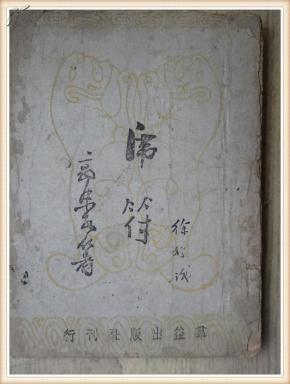 虎符
郭沫若著
徐
羣益出版社刊行